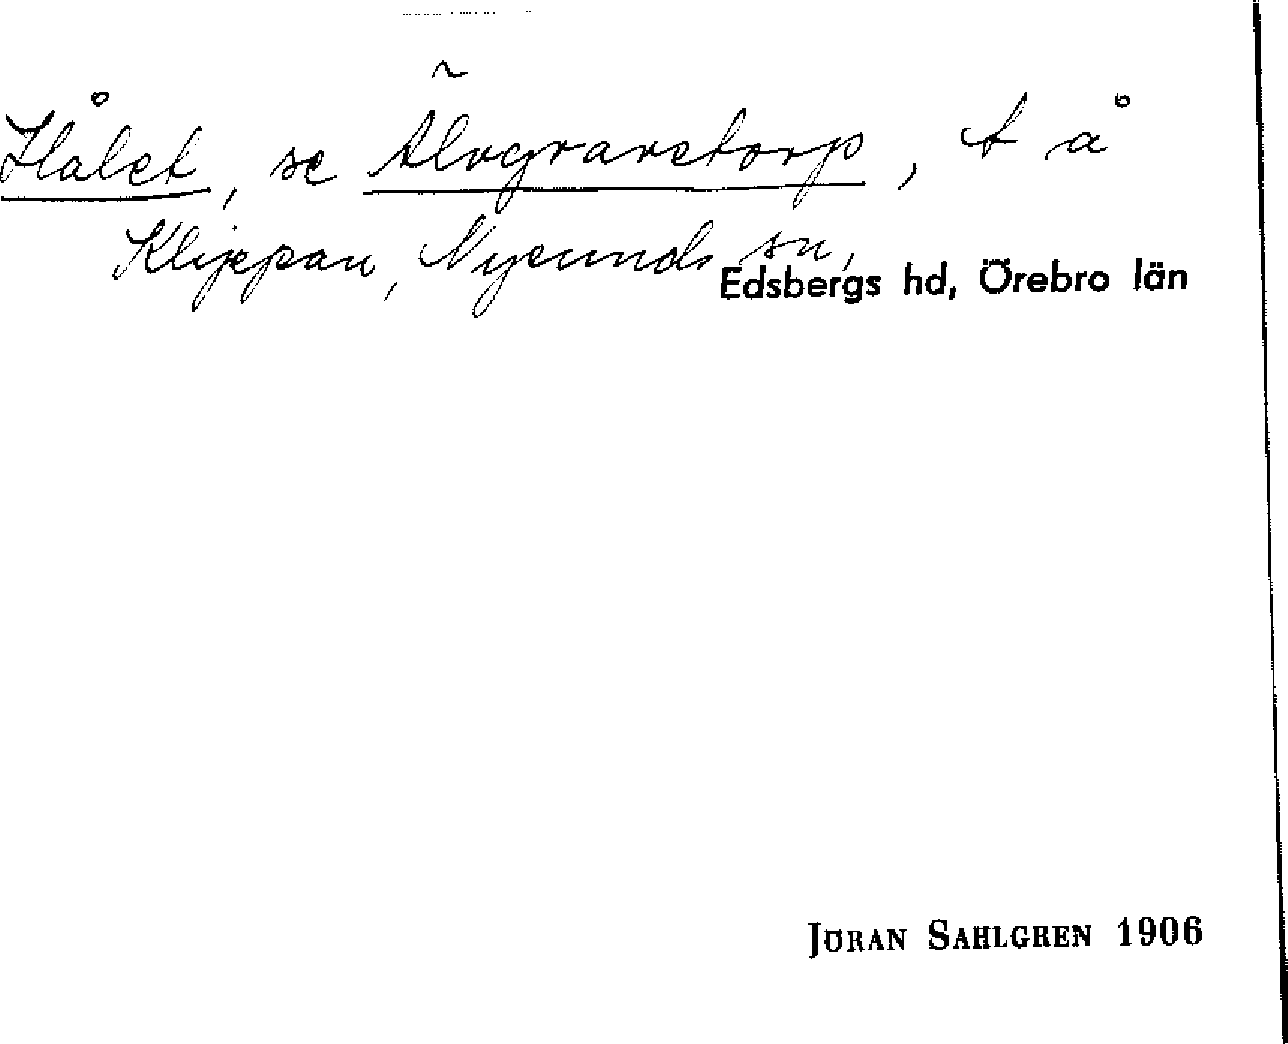 Hålet, se Älvgravstorp, t å
Klippan, Nysunds sn,
Edsbergs hd, Örebro län
JÖRAN SAHLGREN 1906